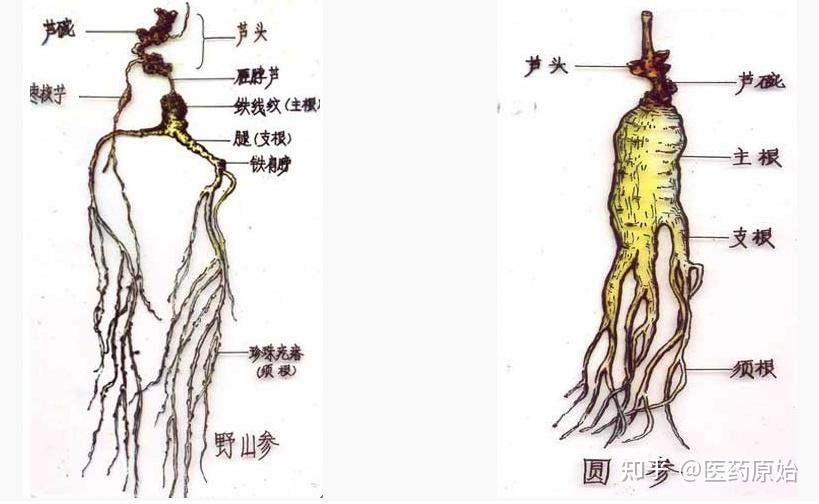 芦碗
芦头
脖芦
铁线纹(主根)
腿(支根)
铁
珍珠
(须根)
野山参
芦头
芦碗
主根
支根
须根
圆参
知乎 @医药原始